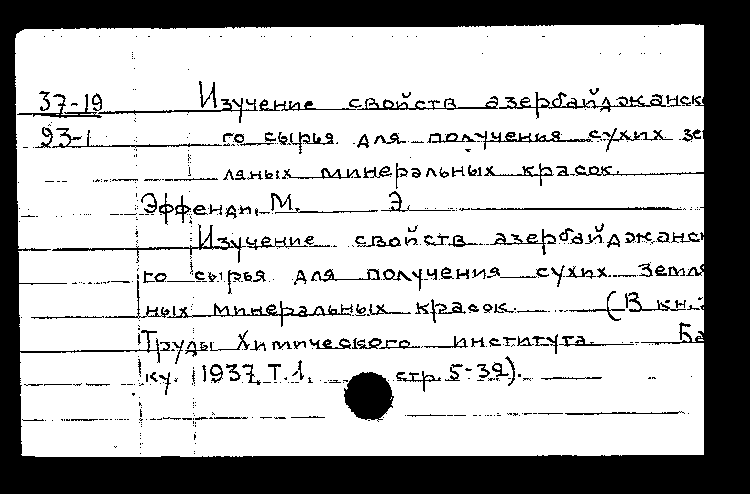 37-19 Изучение свойств азербайджанско
93-1 го сырья для получения сухих зем
ляных минеральных красок.
Эффенди, М. Э.
Изучение свойств азербайджанс
го сырья для получения сухих земля
ных минеральных красок. (В кн.:
Труды Химического института. Ба
ку. 1937. Т.1. стр. 5-39).